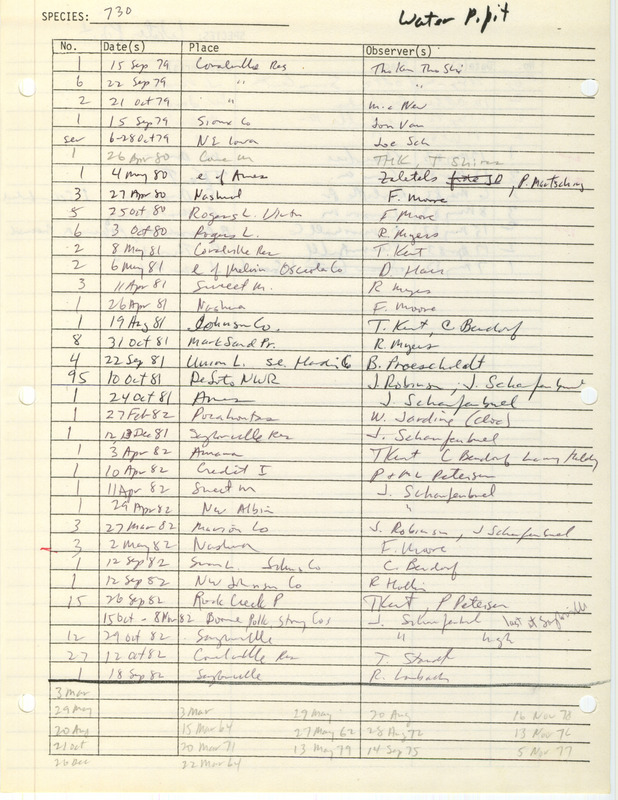 SPECIES: 730 Water Pipit
No. Date(s) Place Observer(s)
1 15 Sep 79 Coralville Res
6 22 Sep 79 "
2 21 Oct 79 "
1 15 Sep 79 Sioux Co Jon Van
6-28 Oct 79 NE Iowa Joe Sch
1 26 Apr 80 THK, T Shires
1 4 May 80 e of Ames Zaletels JD, P. Martsching
3 27 Apr 80 Nashua F. Moore
5 25 Oct 80 Rogers L. F Moore
6 3 Oct 80 Rogers L. R. Myers
2 8 May 81 Coralville Res T. Kent
2 6 May 81 e of Melvin Osceola Co D. Haas
3 11 Apr 81 Sweet M. R Myers
1 26 Apr 81 Nashua F. Moore
1 19 Aug 81 Johnson Co. T. Kent, C Bendorf
8 31 Oct 81 Mark Sand Pr. R. Myers
4 22 Sep 81 Union L. se. Hardin Co B. Proescholdt
95 10 Oct 81 DeSoto NWR J. Robinson, J. Scharfenbuel
1 24 Oct 81 Ames J. Scharfenbuel
1 27 Feb 82 Pocahontas W. Jardine (doc)
1 12, 13 Dec 81 Saylorville Res J. Scharfenbuel
1 3 Apr 82 Amana TKent C Bendorf
1 10 Apr 82 Credit I P + ML Petersen
1 11 Apr 82 Sweet M J. Scharfenbuel
1 29 Apr 82 New Albin "
3 27 Mar 82 Marion Co J. Robinson, J Scharfenbuel
3 2 May 82 Nashua F. Moore
1 12 Sep 82 Swan L. Johns Co C. Bendorf
1 12 Sep 82 NW Johnson Co R Hollis
15 26 Sep 82 Rock Creek P TKent, P Petersen
15 Oct - 8 Nov 82 Boone Polk Story Cos J. Scharfenbuel last at Saylorville
12 29 Oct 82 Saylorville " high
27 12 Oct 82 Coralville Res T. Staudt
1 18 Sep 82 Saylorville
3 Mar
29 May 3 Mar 29 May 20 Aug 16 Nov 78
20 Aug 15 Mar 64 27 May 62 28 Aug 72 13 Nov 76
21 Oct 20 Mar 71 13 May 79 14 Sep 75 5 Nov 77
26 Dec 22 Mar 64